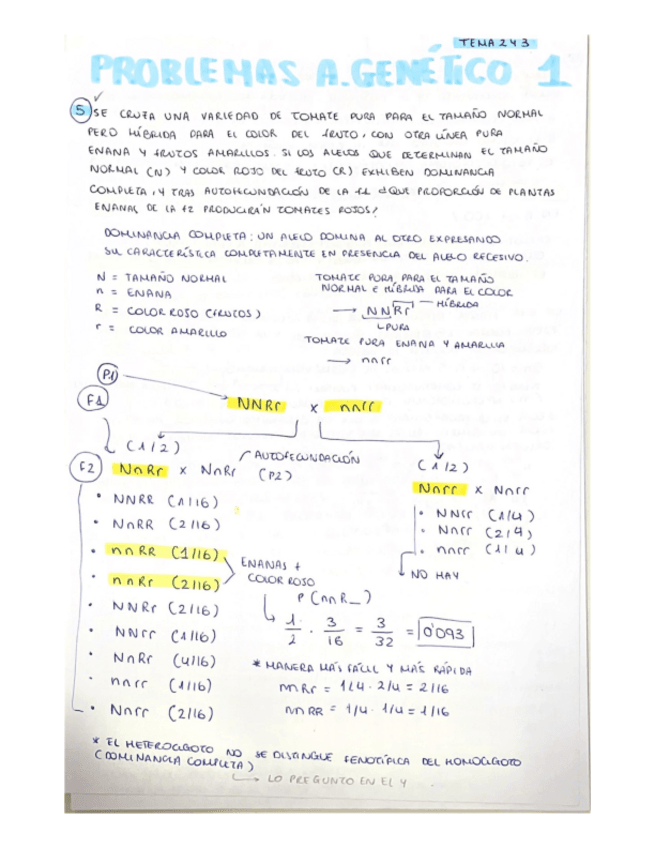 TEMA 2 Y 3
PROBLEMAS A.GENÉTICO 1
5 SE CRUZA UNA VARIEDAD DE TOMATE PURA PARA EL TAMAÑO NORMAL
PERO HÍBRIDA PARA EL COLOR DEL FRUTO, CON OTRA LÍNEA PURA
ENANA Y FRUTOS AMARILLOS. SI LOS ALELOS QUE DETERMINAN EL TAMAÑO
NORMAL (N) Y COLOR ROJO DEL FRUTO (R) EXHIBEN DOMINANCIA
COMPLETA, Y TRAS AUTOFECUNDACIÓN DE LA F1 ¿QUE PROPORCIÓN DE PLANTAS
ENANAS DE LA F2 PRODUCIRÁN TOMATES ROJOS?
DOMINANCIA COMPLETA: UN ALELO DOMINA AL OTRO EXPRESANDO
SU CARACTERÍSTICA COMPLETAMENTE EN PRESENCIA DEL ALELO RECESIVO.
N = TAMAÑO NORMAL
n = ENANA
R = COLOR ROJO (FRUTOS)
r = COLOR AMARILLO
TOMATE PURA PARA EL TAMAÑO
NORMAL E HÍBRIDA PARA EL COLOR
→ NNRr — HÍBRIDA
PURA
TOMATE PURA ENANA Y AMARILLA
→ nnrr
P1
F1
NNRr x nnrr
(1/2)
F2 NnRr x NnRr
AUTOFECUNDACIÓN
(P2)
• NNRR (1/16)
• NnRR (2/16)
• nnRR (1/16)
• nnRr (2/16)
• NNRr (2/16)
• NNrr (1/16)
• NnRr (4/16)
• nnrr (1/16)
• Nnrr (2/16)
(1/2)
Nnrr x Nnrr
• NNrr (1/4)
• Nnrr (2/4)
• nnrr (1/4)
NO HAY
ENANAS +
COLOR ROJO
P (nnR_)
1/2 · 3/16 = 3/32 = 0'093
* MANERA MÁS FÁCIL Y MÁS RÁPIDA
nnRr = 1/4 · 2/4 = 2/16
nnRR = 1/4 · 1/4 = 1/16
* EL HETEROCIGOTO NO SE DISTINGUE FENOTÍPICA DEL HOMOCIGOTO
(DOMINANCIA COMPLETA)
→ LO PREGUNTO EN EL Y